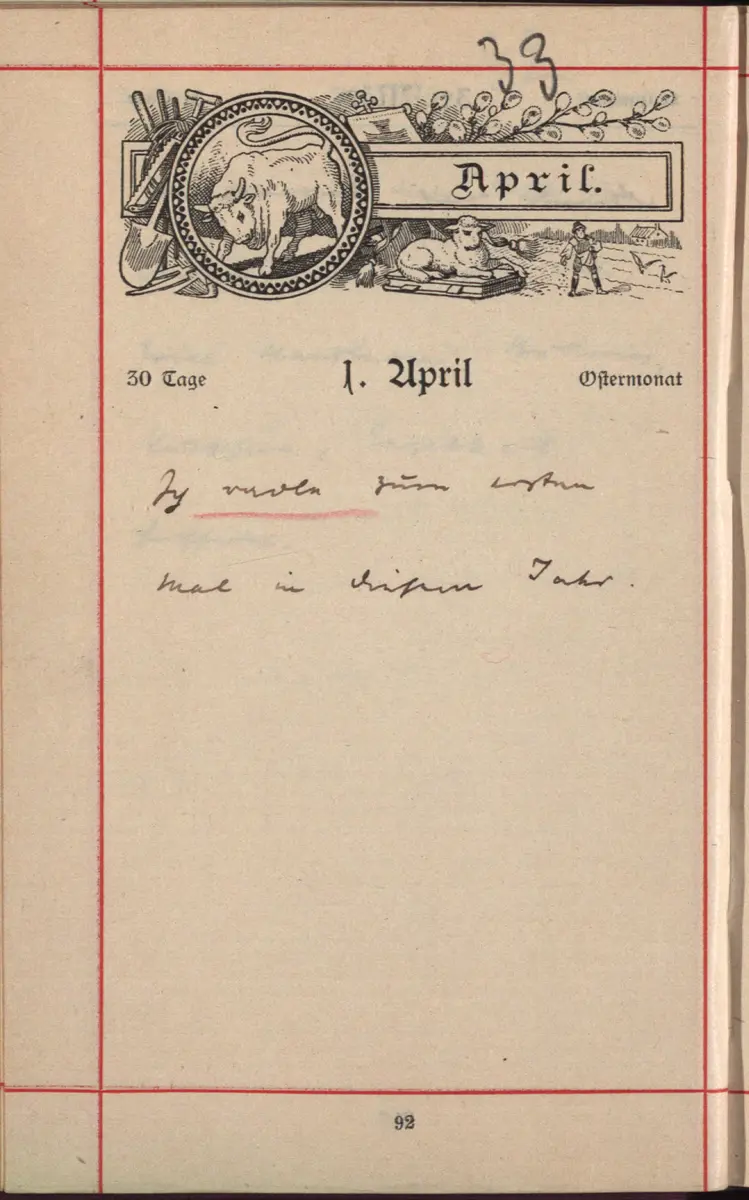 33
April.
30 Tage
1. April
Ostermonat
Ich radle zum ersten
Mal in diesem Jahr.
92